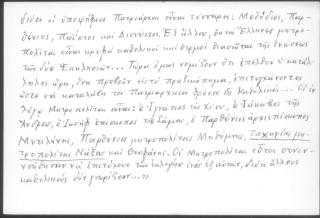 διότι οἱ ὑποψήφιοι Πατριάρχαι εἶναι τέσσαρες: Μεθόδιος, Παρ-
θένιος, Παΐσιος καὶ Διονύσιος. Ἐξ ἄλλου, ἑπτὰ Ἕλληνες μητρο-
πολῖται εἶναι κρυφὰ καθολικοὶ καὶ θερμοὶ τῆς ἑνώσεως
τῶν δύο Ἐκκλησιῶν... Τώρα ὅμως νομίζουν ὅτι ἐπῆλθεν ἡ κατάλ-
ληλος ὥρα, ἵνα προβοῦν εἰς τὸ πραξικόπημα, ἐπιτυγχάνοντες
ὥστε νὰ καταλάβῃ τὸν Πατριαρχικὸν θρόνον εἷς Καθολικός... Οἱ ἐν
λόγῳ Μητροπολῖται εἶναι: ὁ Ἰγνάτιος τῆς Χίου, ὁ τῆς
Ἄνδρου, ὁ Ἰωσὴφ ἐπίσκοπος τῆς Σάμου, ὁ Παρθένιος ἀρχιεπίσκοπος
Μυτιλήνης, Παρθένιος μητροπολίτης Μηθύμνης, Ζαχαρίας μη-
τροπολίτης Νάξου καὶ Θεοφάνης. Οἱ Μητροπολῖται οὗτοι συνεν-
νοήθησαν νὰ ἐπιτύχουν τὴν ἐκλογὴν ἑνὸς ἐξ αὐτῶν, διότι ἄλλους
καθολικοὺς δὲν γνωρίζουν...»